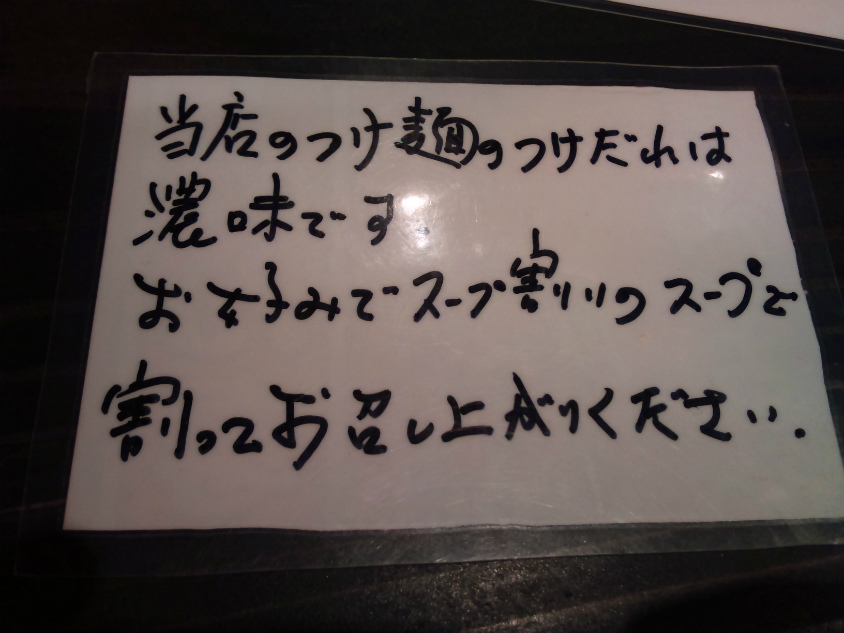 当店のつけ麺のつけだれは
濃味です.
お好みでスープ割りのスープで
割ってお召し上がりください.